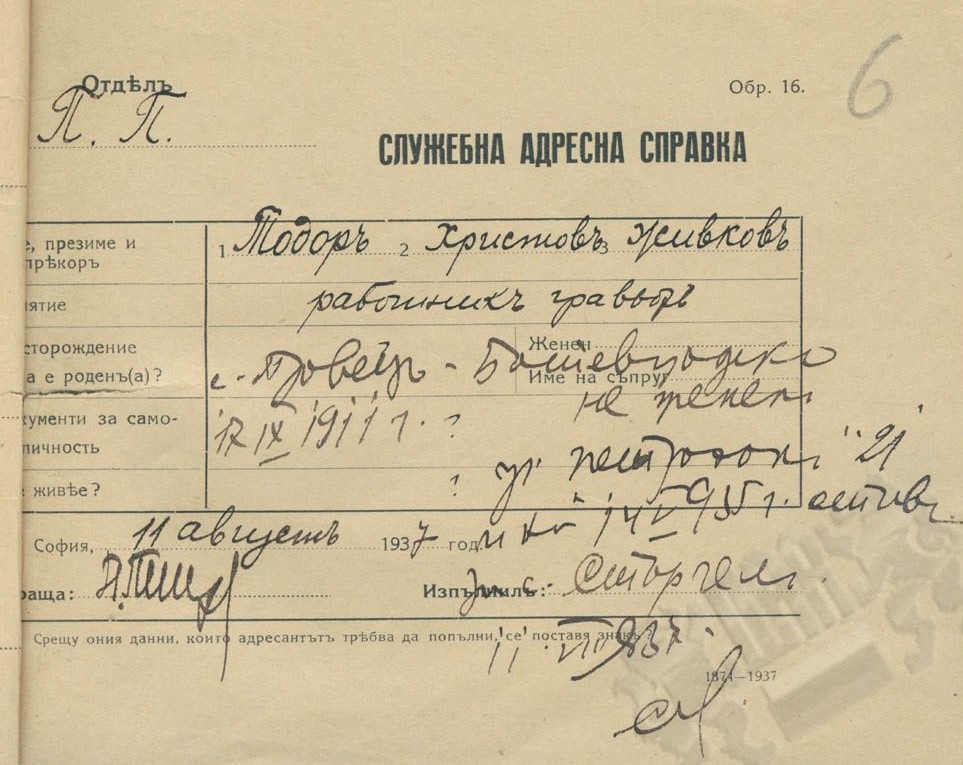 Отдѣлъ
Обр. 16.
6
П. П.
СЛУЖЕБНА АДРЕСНА СПРАВКА
е, презиме и прѣкоръ
1 Тодоръ 2 Христовъ 3 Живковъ
ятие
работникъ гравьоръ
сторождение
Жененъ
а е роденъ(а)?
с. Правецъ - Ботевградско
Име на съпруг
не жененъ
кументи за само-
личность
17 IX 1911 г. ?
живѣе?
? ул. 21
14 V 935 г.
София, 11 августъ 1937 год.
раща:
Изпълнилъ:
Срещу ония данни, които адресантътъ трѣбва да попълни, се поставя знакъ ?
11. VIII 937.
1871—1937